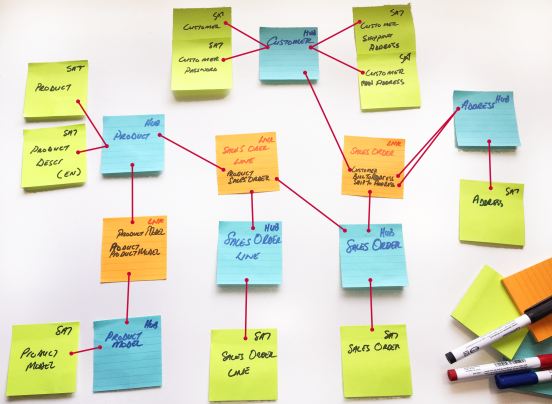 SAT
CUSTOMER
SAT
CUSTOMER
PASSWORD
HUB
CUSTOMER
SAT
CUSTOMER
SHIPPING
ADDRESS
SAT
CUSTOMER
MAIN ADDRESS
SAT
PRODUCT
SAT
PRODUCT
DESCR
(EN)
HUB
PRODUCT
LINK
SALES ORDER
LINE
PRODUCT
SALES ORDER
LINK
SALES ORDER
CUSTOMER
BILL TO ADDRESS
SHIP TO ADDRESS
HUB
ADDRESS
SAT
ADDRESS
LINK
PRODUCT MODEL
PRODUCT
PRODUCT MODEL
HUB
SALES ORDER
LINE
HUB
SALES ORDER
SAT
PRODUCT
MODEL
HUB
PRODUCT
MODEL
SAT
SALES ORDER
LINE
SAT
SALES ORDER